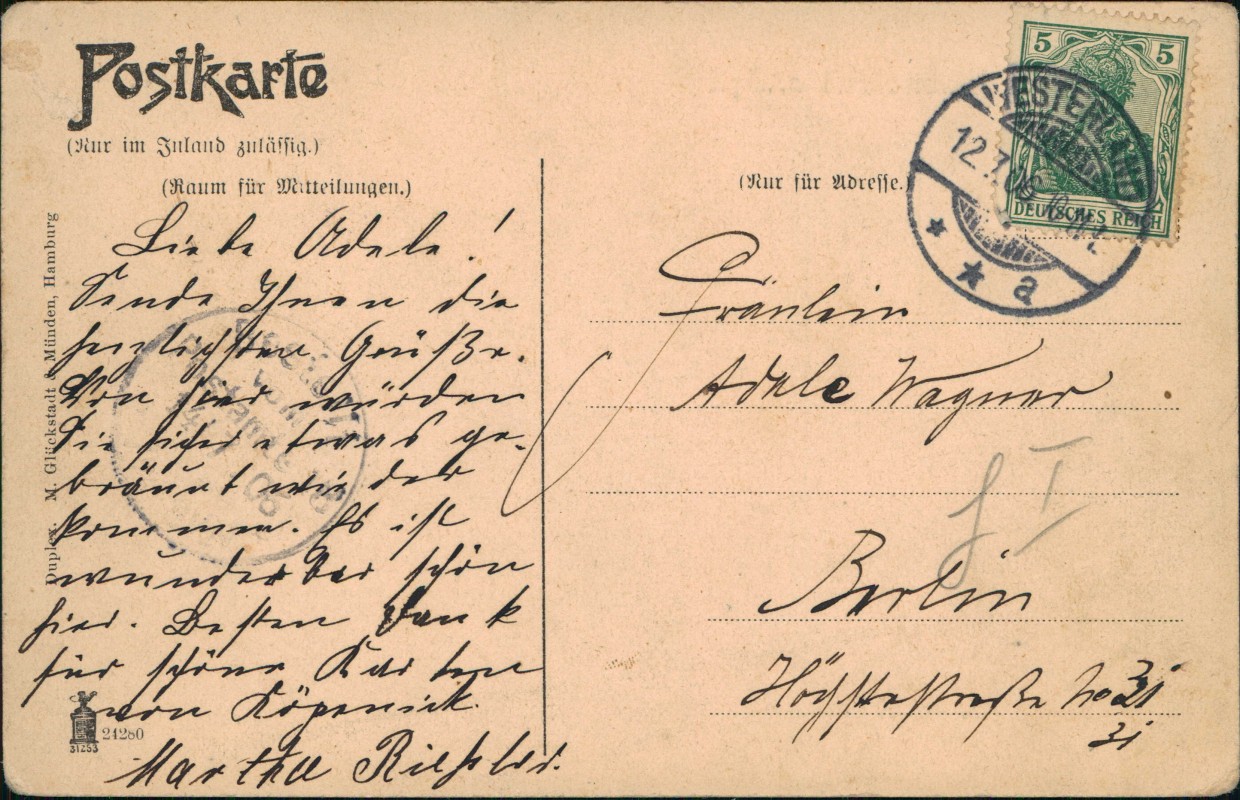 Postkarte
(Nur im Inland zulässig.)
(Raum für Mitteilungen.)
Liebe Adele!
Sende Ihnen die
herzlichsten Grüße.
Von hier würden
Sie sicher etwas ge-
bräunt wieder
kommen. Es ist
wunderbar schön
hier. Besten Dank
für schöne Karten
von Köpenick.
Martha
Duplex. M. Glückstadt & Münden, Hamburg
31253
21280
(Nur für Adresse.)
5 5
DEUTSCHES REICH
WESTERLAND
12.7.06
a
Fräulein
Adele Wagner
Berlin
Höchstestraße No 31
31
I